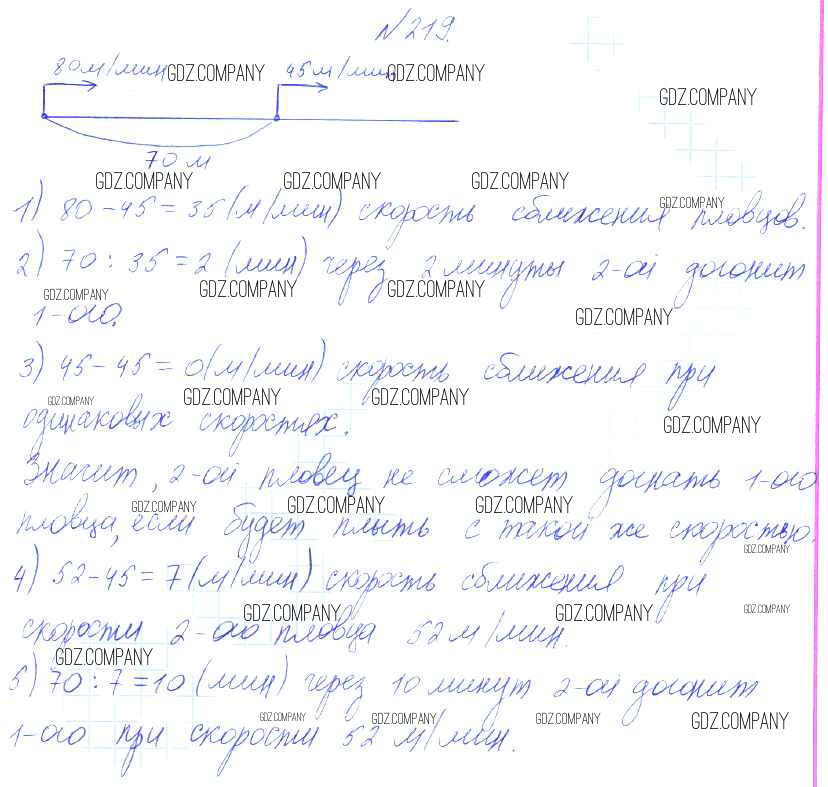 №219.
80м/мин GDZ.COMPANY 45м/мин GDZ.COMPANY
GDZ.COMPANY
70 м
GDZ.COMPANY GDZ.COMPANY GDZ.COMPANY
GDZ.COMPANY
1) 80-45=35(м/мин) скорость сближения пловцов.
2) 70:35=2 (мин) через 2 минуты 2-ой догонит
GDZ.COMPANY GDZ.COMPANY GDZ.COMPANY
1-ого. GDZ.COMPANY
3) 45-45=0(м/мин) скорость сближения при
GDZ.COMPANY GDZ.COMPANY GDZ.COMPANY
одинаковых скоростях. GDZ.COMPANY
Значит, 2-ой пловец не сможет догнать 1-ого
GDZ.COMPANY GDZ.COMPANY GDZ.COMPANY
пловца, если будет плыть с такой же скоростью.
GDZ.COMPANY
4) 52-45=7(м/мин) скорость сближения при
GDZ.COMPANY GDZ.COMPANY GDZ.COMPANY
скорости 2-ого пловца 52м/мин.
GDZ.COMPANY
5) 70:7=10 (мин) через 10 минут 2-ой догонит
GDZ.COMPANY GDZ.COMPANY GDZ.COMPANY GDZ.COMPANY
1-ого при скорости 52 м/мин.